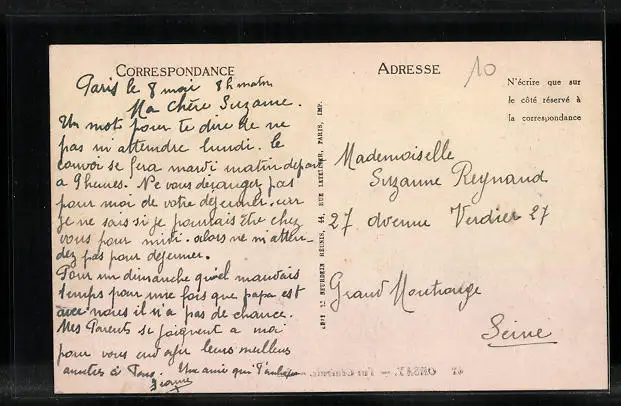 CORRESPONDANCE
Paris le 8 mai 8h matin
Ma Chère Suzanne.
Un mot pour te dire de ne
pas m'attendre lundi. le
convoi se fera mardi matin depart
a 9 heures. Ne vous derangez pas
pour moi de votre déjeuner. car
je ne sais si je pourrais être chez
vous pour midi. alors ne m'atten-
dez pas pour dejeuner.
Pour un dimanche quel mauvais
temps pour une fois que papa est
avec nous il n'a pas de chance.
Mes Parents se joignent a moi
pour vous envoyer leurs meilleurs
amitiés à Tous. Une amie qui
Jeanne
EDIT. LE DEUIL RÉUNIS, 44, RUE LETELLIER, PARIS, IMP.
ADRESSE
10
N'écrire que sur
le côté réservé à
la correspondance
Mademoiselle
Suzanne Reynaud
27 avenue Verdier 27
Grand Montrouge
Seine
47 ORSAY. — Vue Générale